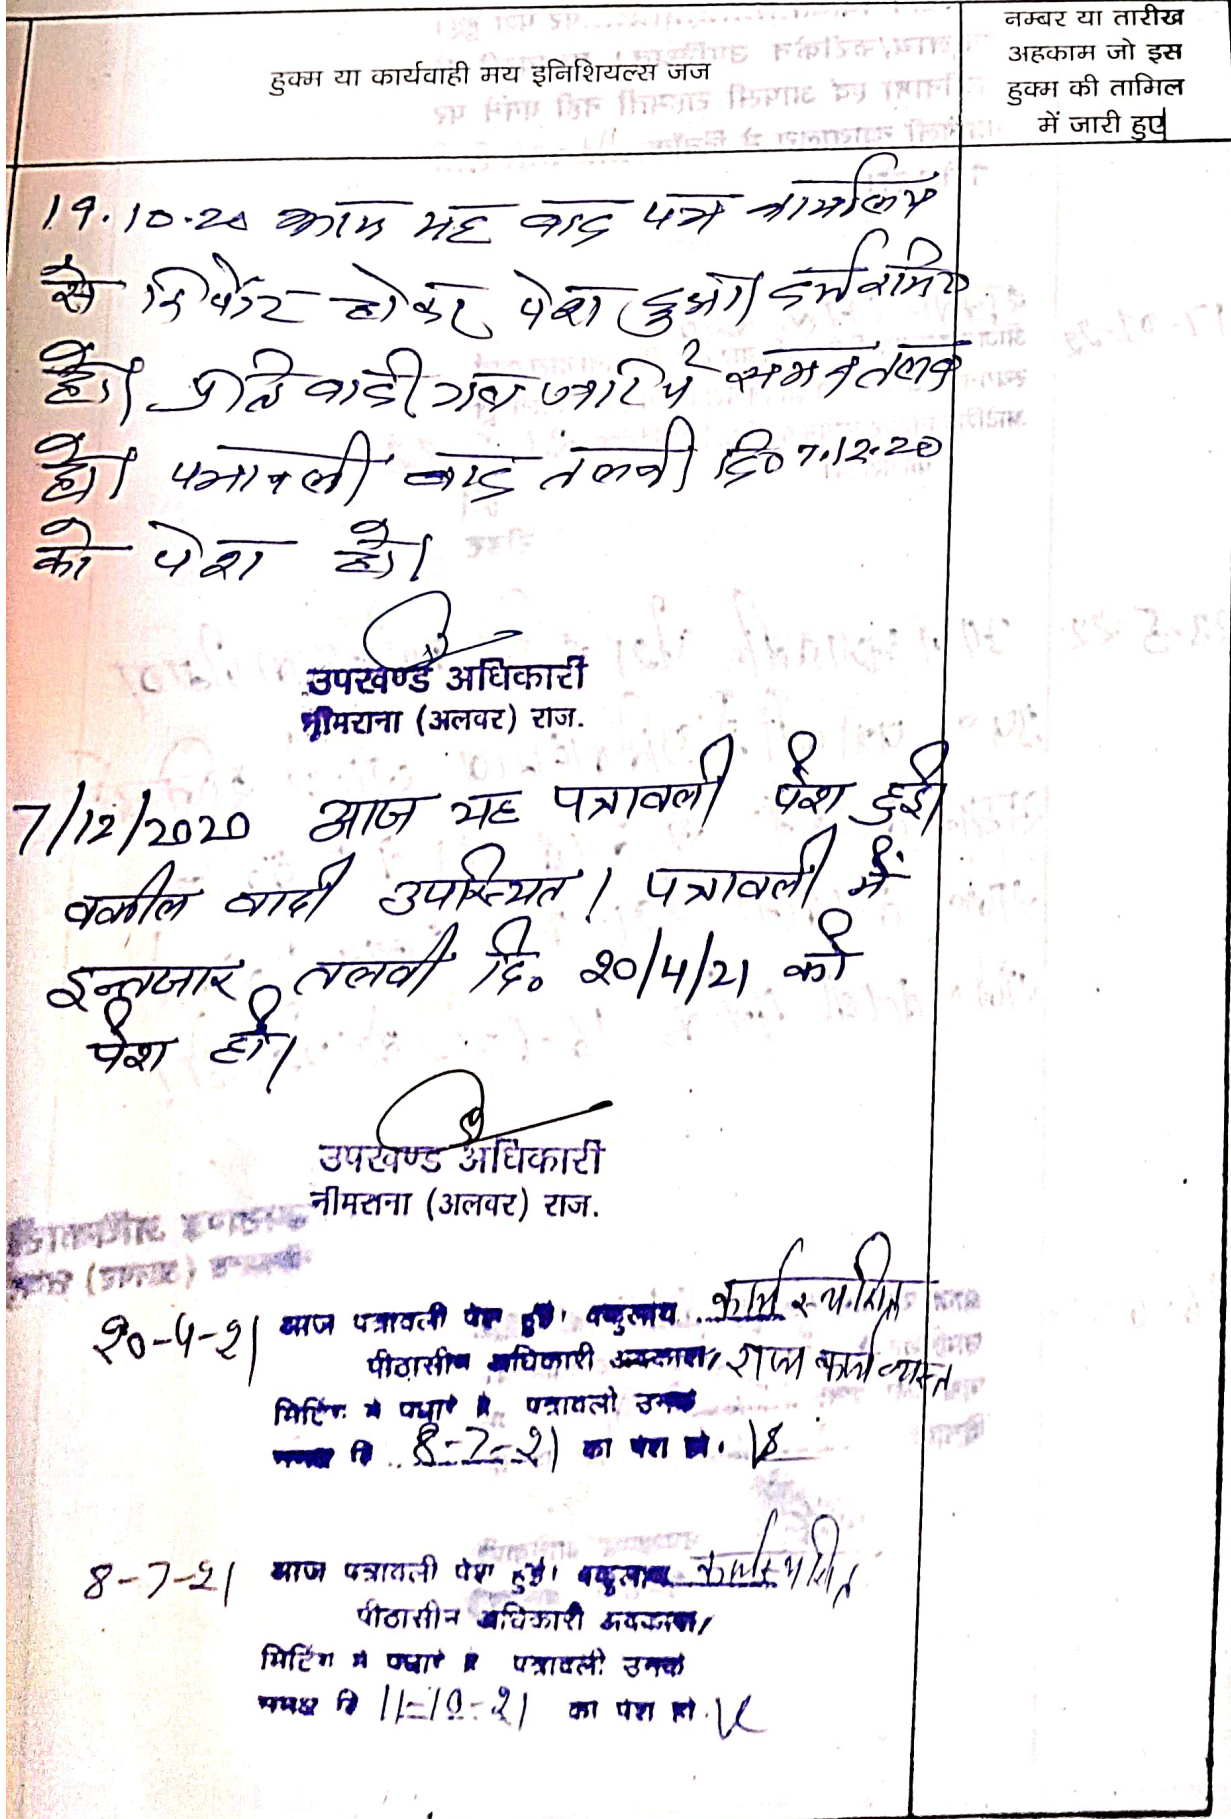 हुक्म या कार्यवाही मय इनिशियल्स जज
नम्बर या तारीख
अहकाम जो इस
हुक्म की तामिल
में जारी हुए
19.10.20 यह वाद पत्र
से रिपोर्ट होकर पेश हुआ। दर्ज
हो। प्रतिवादीगण जरिये समन तलब
हो। पत्रावली वास्ते तलबी दि० 7.12.20
को पेश हो।
उपखण्ड अधिकारी
नीमराना (अलवर) राज.
7/12/2020 आज यह पत्रावली पेश हुई।
वकील वादी उपस्थित। पत्रावली में
इन्तजार तलबी दि. 20/4/21 को
पेश हो।
उपखण्ड अधिकारी
नीमराना (अलवर) राज.
20-4-21 आज पत्रावली पेश हुई। वकुलाय कार्य स्थगित
पीठासीन अधिकारी अवकाश/ राज कार्य व्यस्त
मिटिंग में पधारे है पत्रावली उनके
समक्ष दि 8-7-21 को पेश हो.
8-7-21 आज पत्रावली पेश हुई। वकुलाय कार्य स्थगित
पीठासीन अधिकारी अवकाश/
मिटिंग में पधारे है पत्रावली उनके
समक्ष दि 11-10-21 को पेश हो.